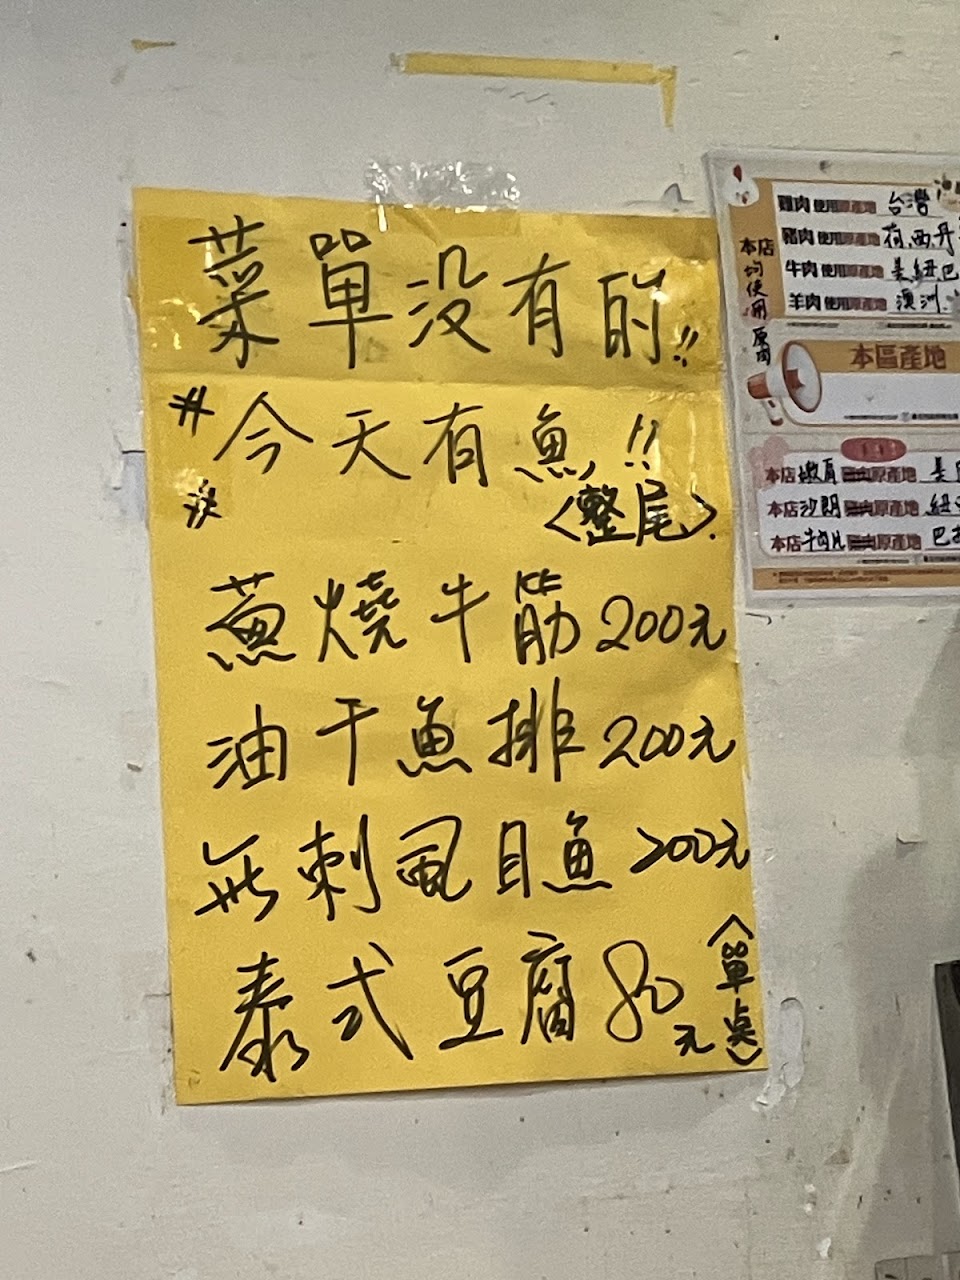 菜單没有的!!
# 今天有魚!!
# <整尾>.
蔥燒牛筋200元
油干魚排200元
無刺虱目魚200元
泰式豆腐80元
<單桌>
雞肉使用原產地 台灣
豬肉使用原產地 有.西.丹
牛肉使用原產地 是.紐.巴
羊肉使用原產地 澳洲.
本店均使用原肉
本區產地
本店嫩肩原產地
本店沙朗原產地 紐
本店牛肉片原產地 巴